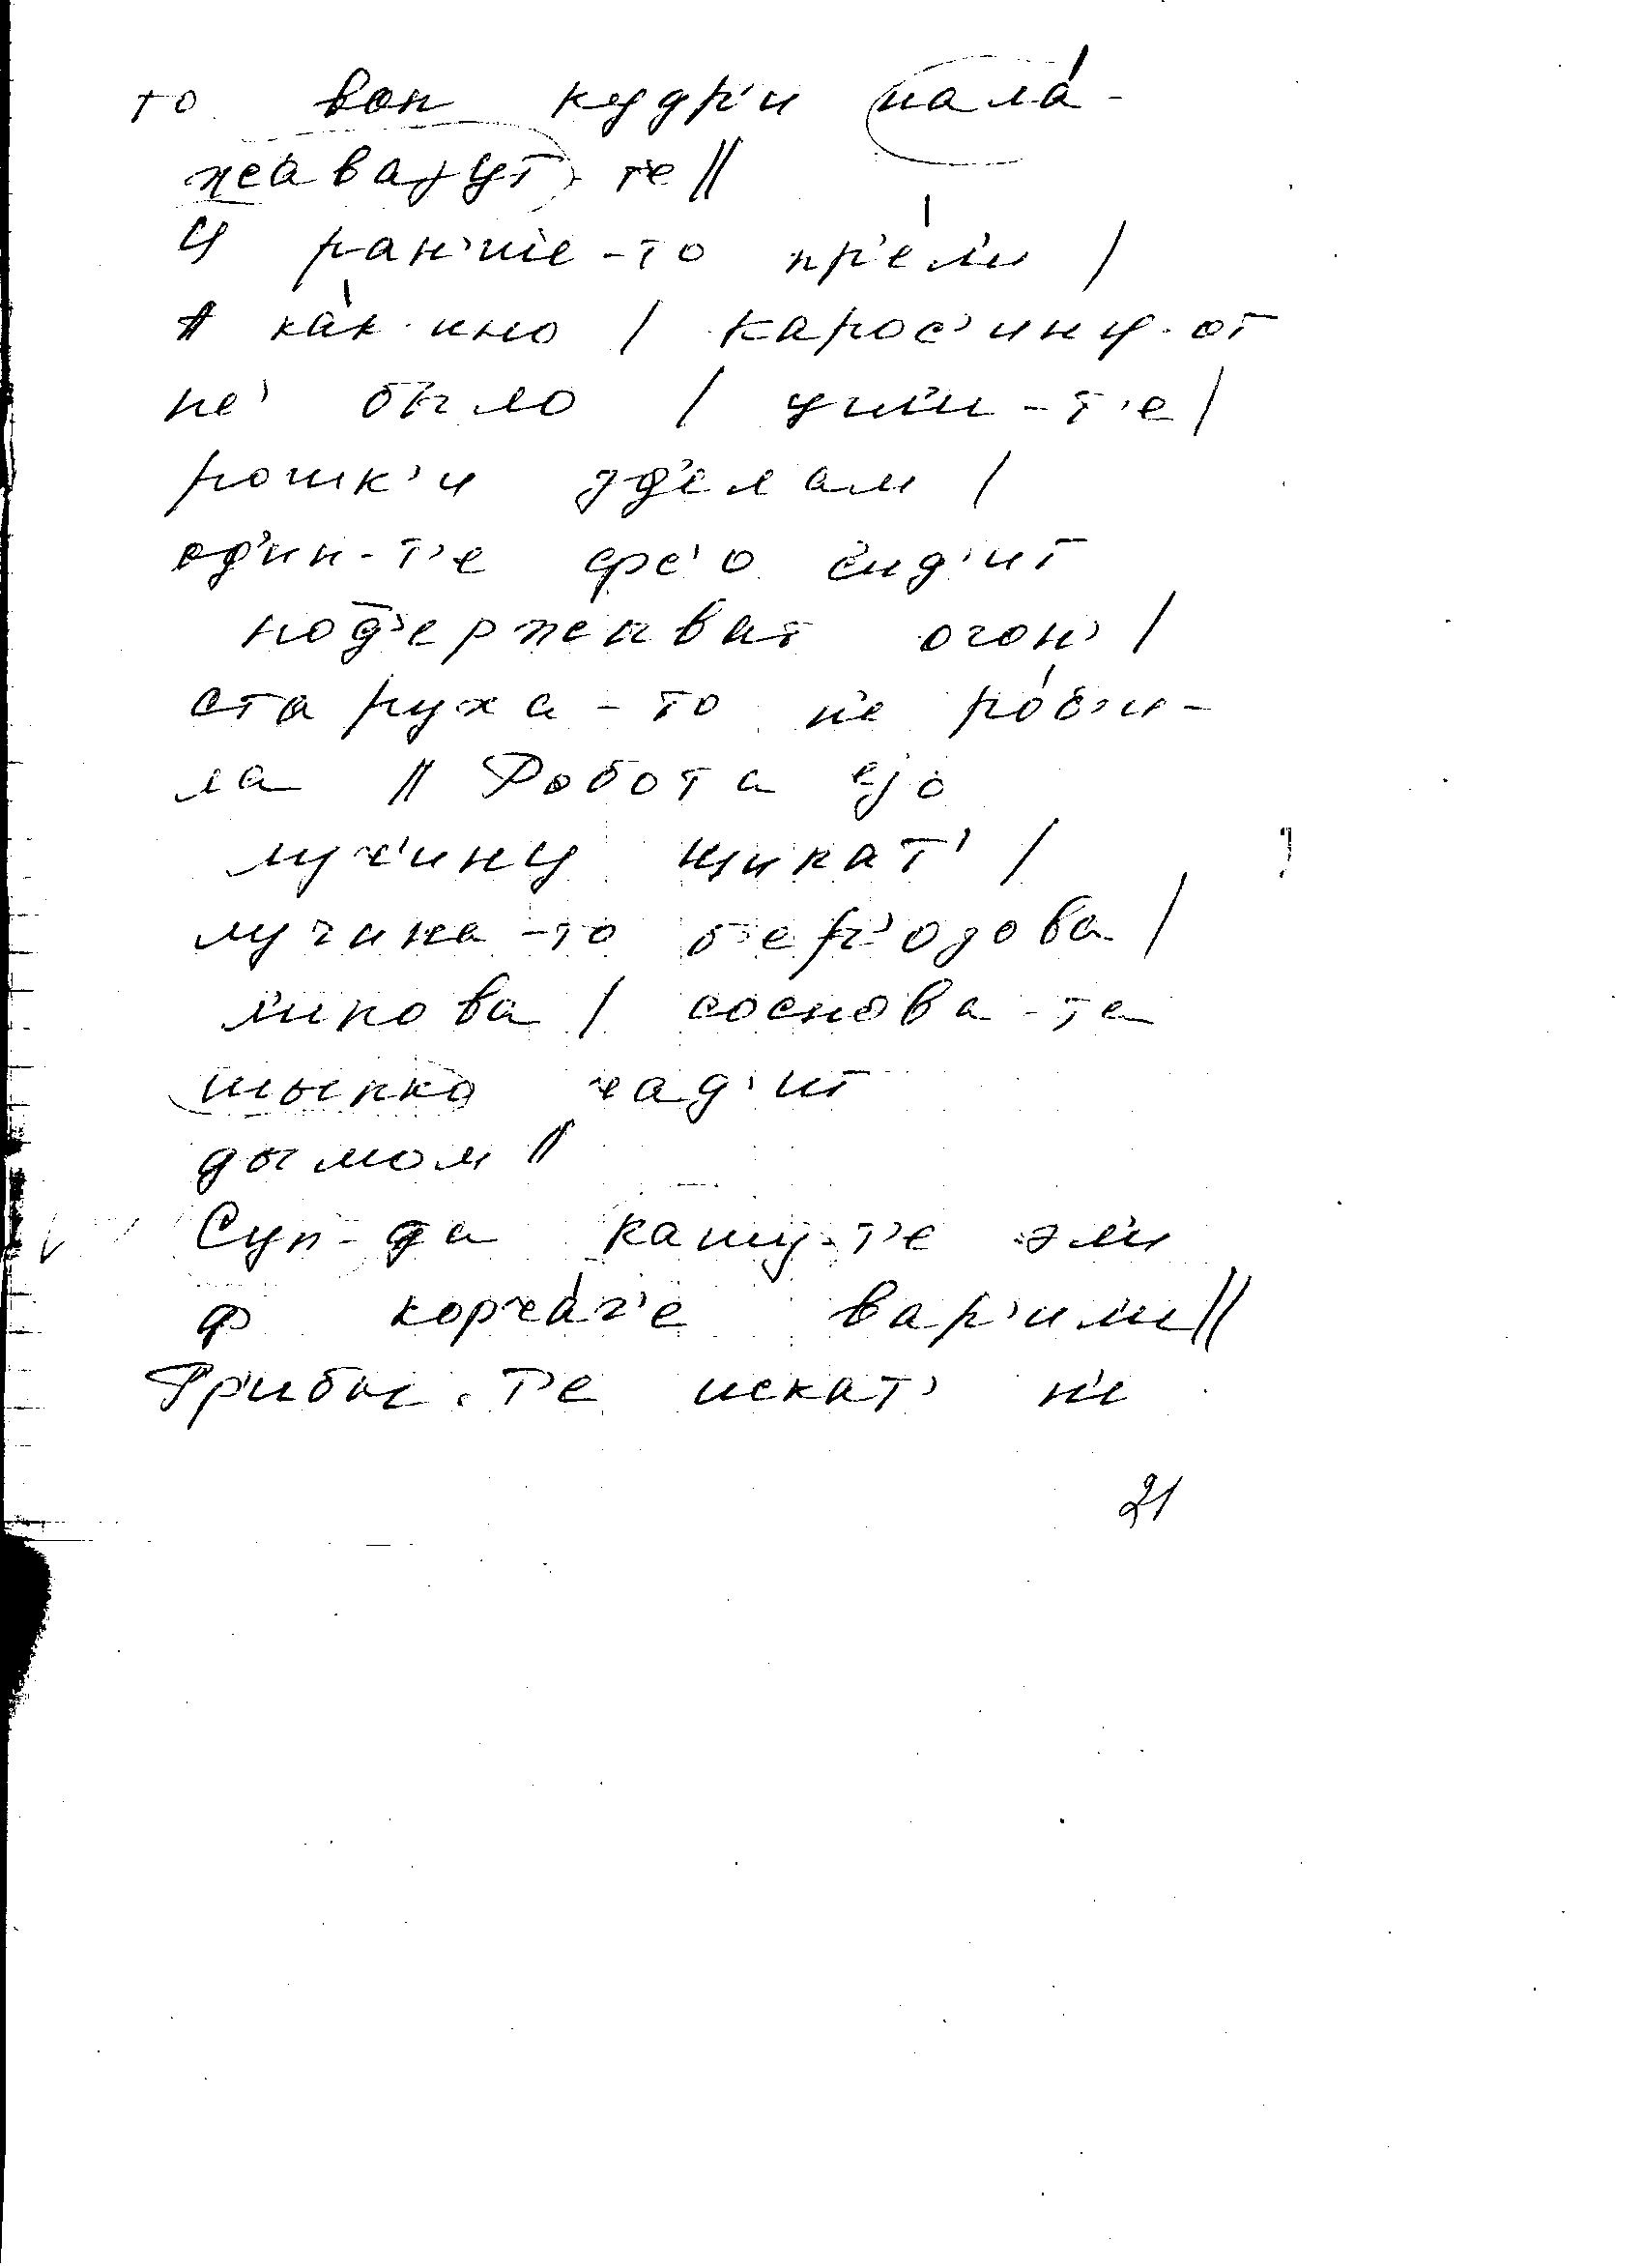 то вон кудр'и нала́-
жеавајут-те ||
И ран'ше-то пр'е́ли |
А ка́к-ино | карос'ину-от
не' было | ушли-т'е |
рошк'и зд'елам |
од'ин-т'е фс'о сид'ит
под'ержыват огон' |
старуха-то н'е ро́би-
ла || Робота јејо
луч'ину щипат' |
лучина-то б'ер'озова |
липова | соснова-та
шыпко чад'ит
дымом ||
Суп-да кашу-т'е эли
ф корча́г'е вар'или ||
Гр'ибы-т'е искат' н'е
21